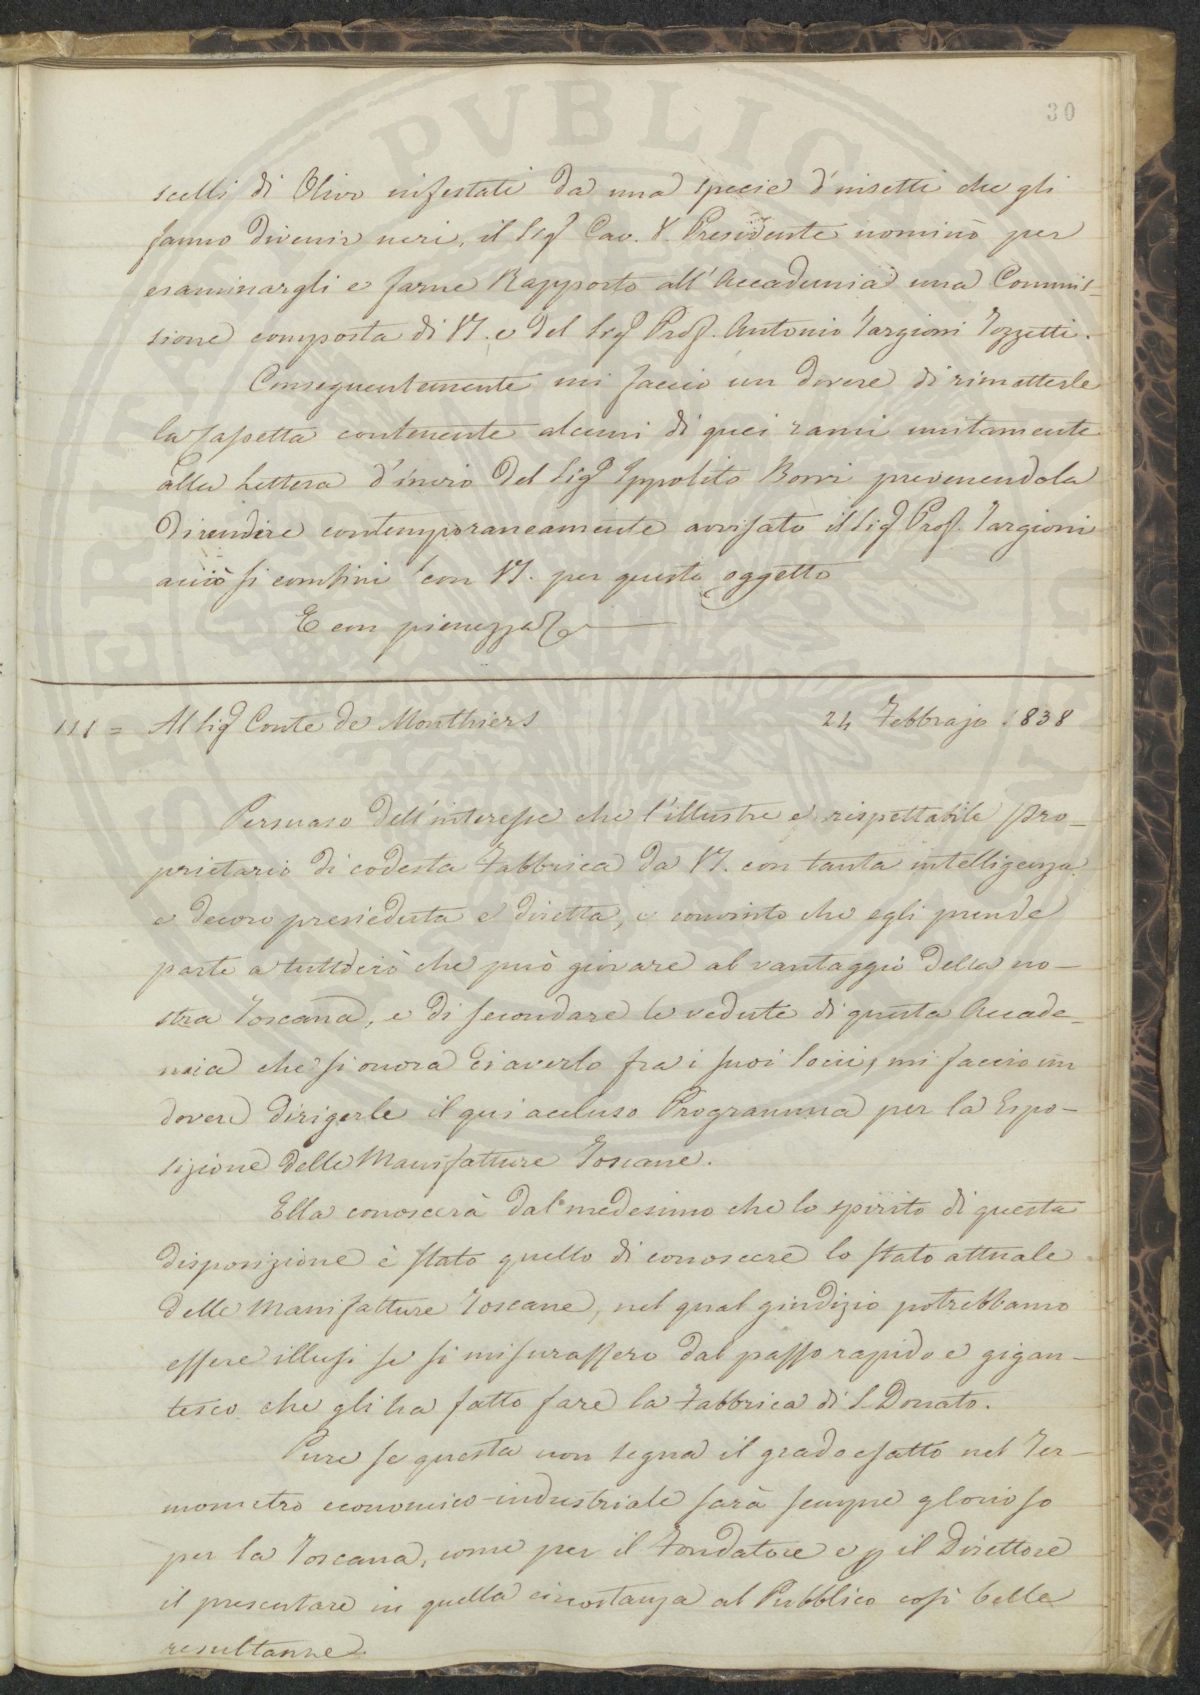 30
scelli di Olivo infestati da una specie d'insetti che gli
fanno divenir neri, il Sig.r Cav. V. Presidente nominò per
esaminargli e farne Rapporto all'Accademia una Commis-
sione composta di VS. e del Sig.r Prof. Antonio Targioni Tozzetti.
Conseguentemente mi faccio un dovere di rimetterle
la cassetta contenente alcuni di quei rami unitamente
alla Lettera d'invio del Sig.r Ippolito Borri prevenendola
di rendere contemporaneamente avvisato il Sig.r Prof. Targioni
acciò si combini con VS. per questo oggetto
E con pienezza
111 = Al Sig.r Conte de Monthiers 24 Febbrajo 1838
Persuaso dell'interesse che l'illustre e rispettabile Pro-
prietario di codesta Fabbrica da VS. con tanta intelligenza
e decoro presieduta e diretta, e convinto che egli prende
parte a tuttociò che può giovare al vantaggio della no-
stra Toscana, e di secondare le vedute di questa Accade-
mia che si onora di averlo fra i suoi Socii, mi faccio un
dovere dirigerle il qui accluso Programma per la Espo-
sizione delle Manifatture Toscane.
Ella conoscerà dal medesimo che lo spirito di questa
disposizione è stato quello di conoscere lo stato attuale
delle Manifatture Toscane, nel qual giudizio potrebbamo
essere illusi se si misurassero dal passo rapido e gigan-
tesco che gli ha fatto fare la Fabbrica di S. Donato.
Pure se questa non segna il grado esatto nel Ter-
mometro economico-industriale sarà sempre glorioso
per la Toscana, come per il Fondatore e p il Direttore
il presentare in quella circostanza al Pubblico così belle
resultanze.